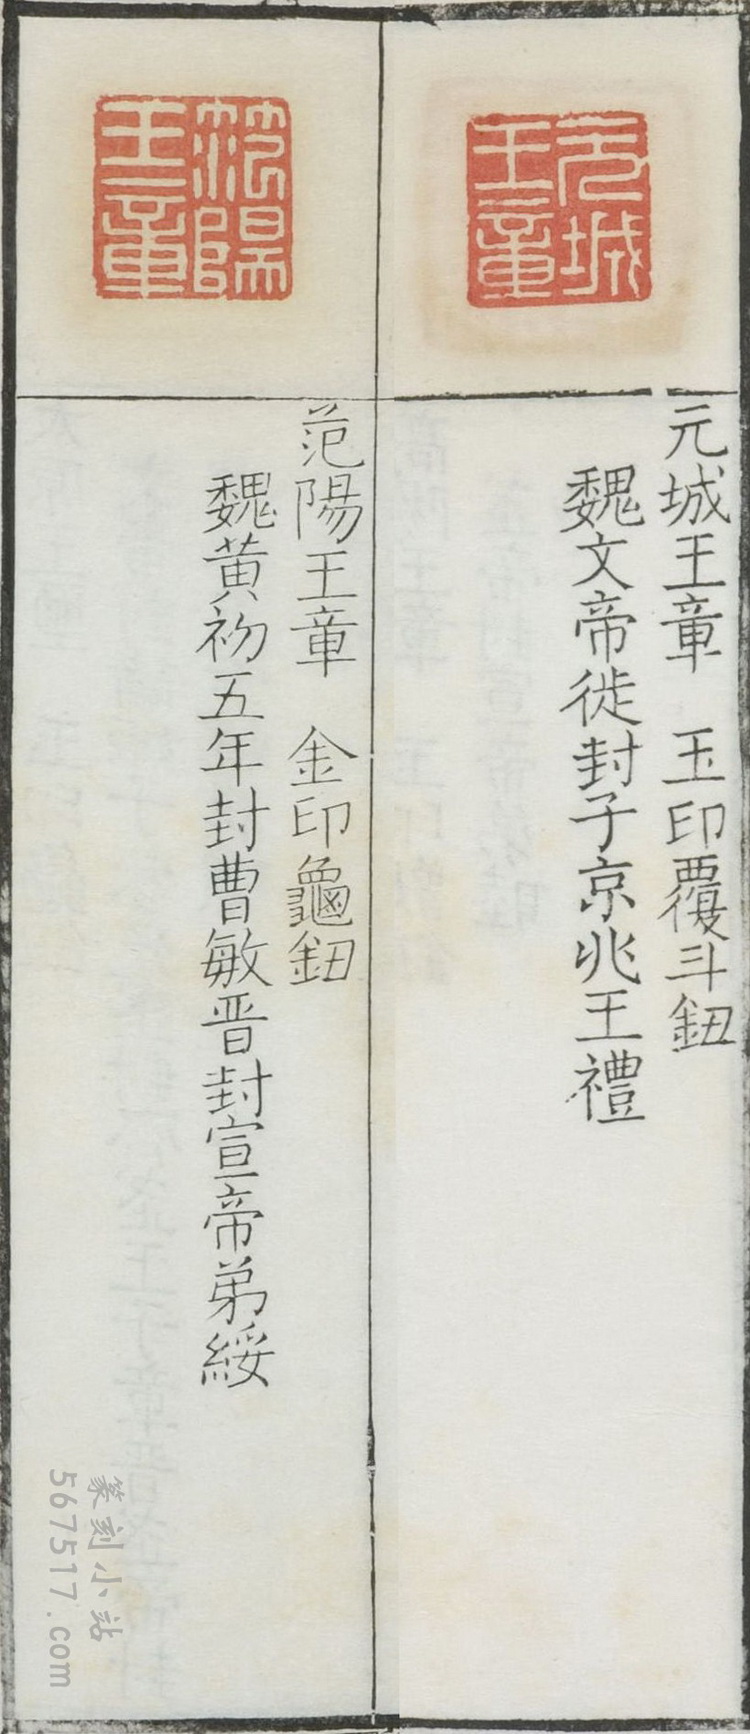 元城王章
元城王章　玉印覆斗鈕
魏文帝徙封子京兆王禮
范陽王章
范陽王章　金印龜鈕
魏黃初五年封曹敏晋封宣帝弟綏
篆刻小站
567517.com